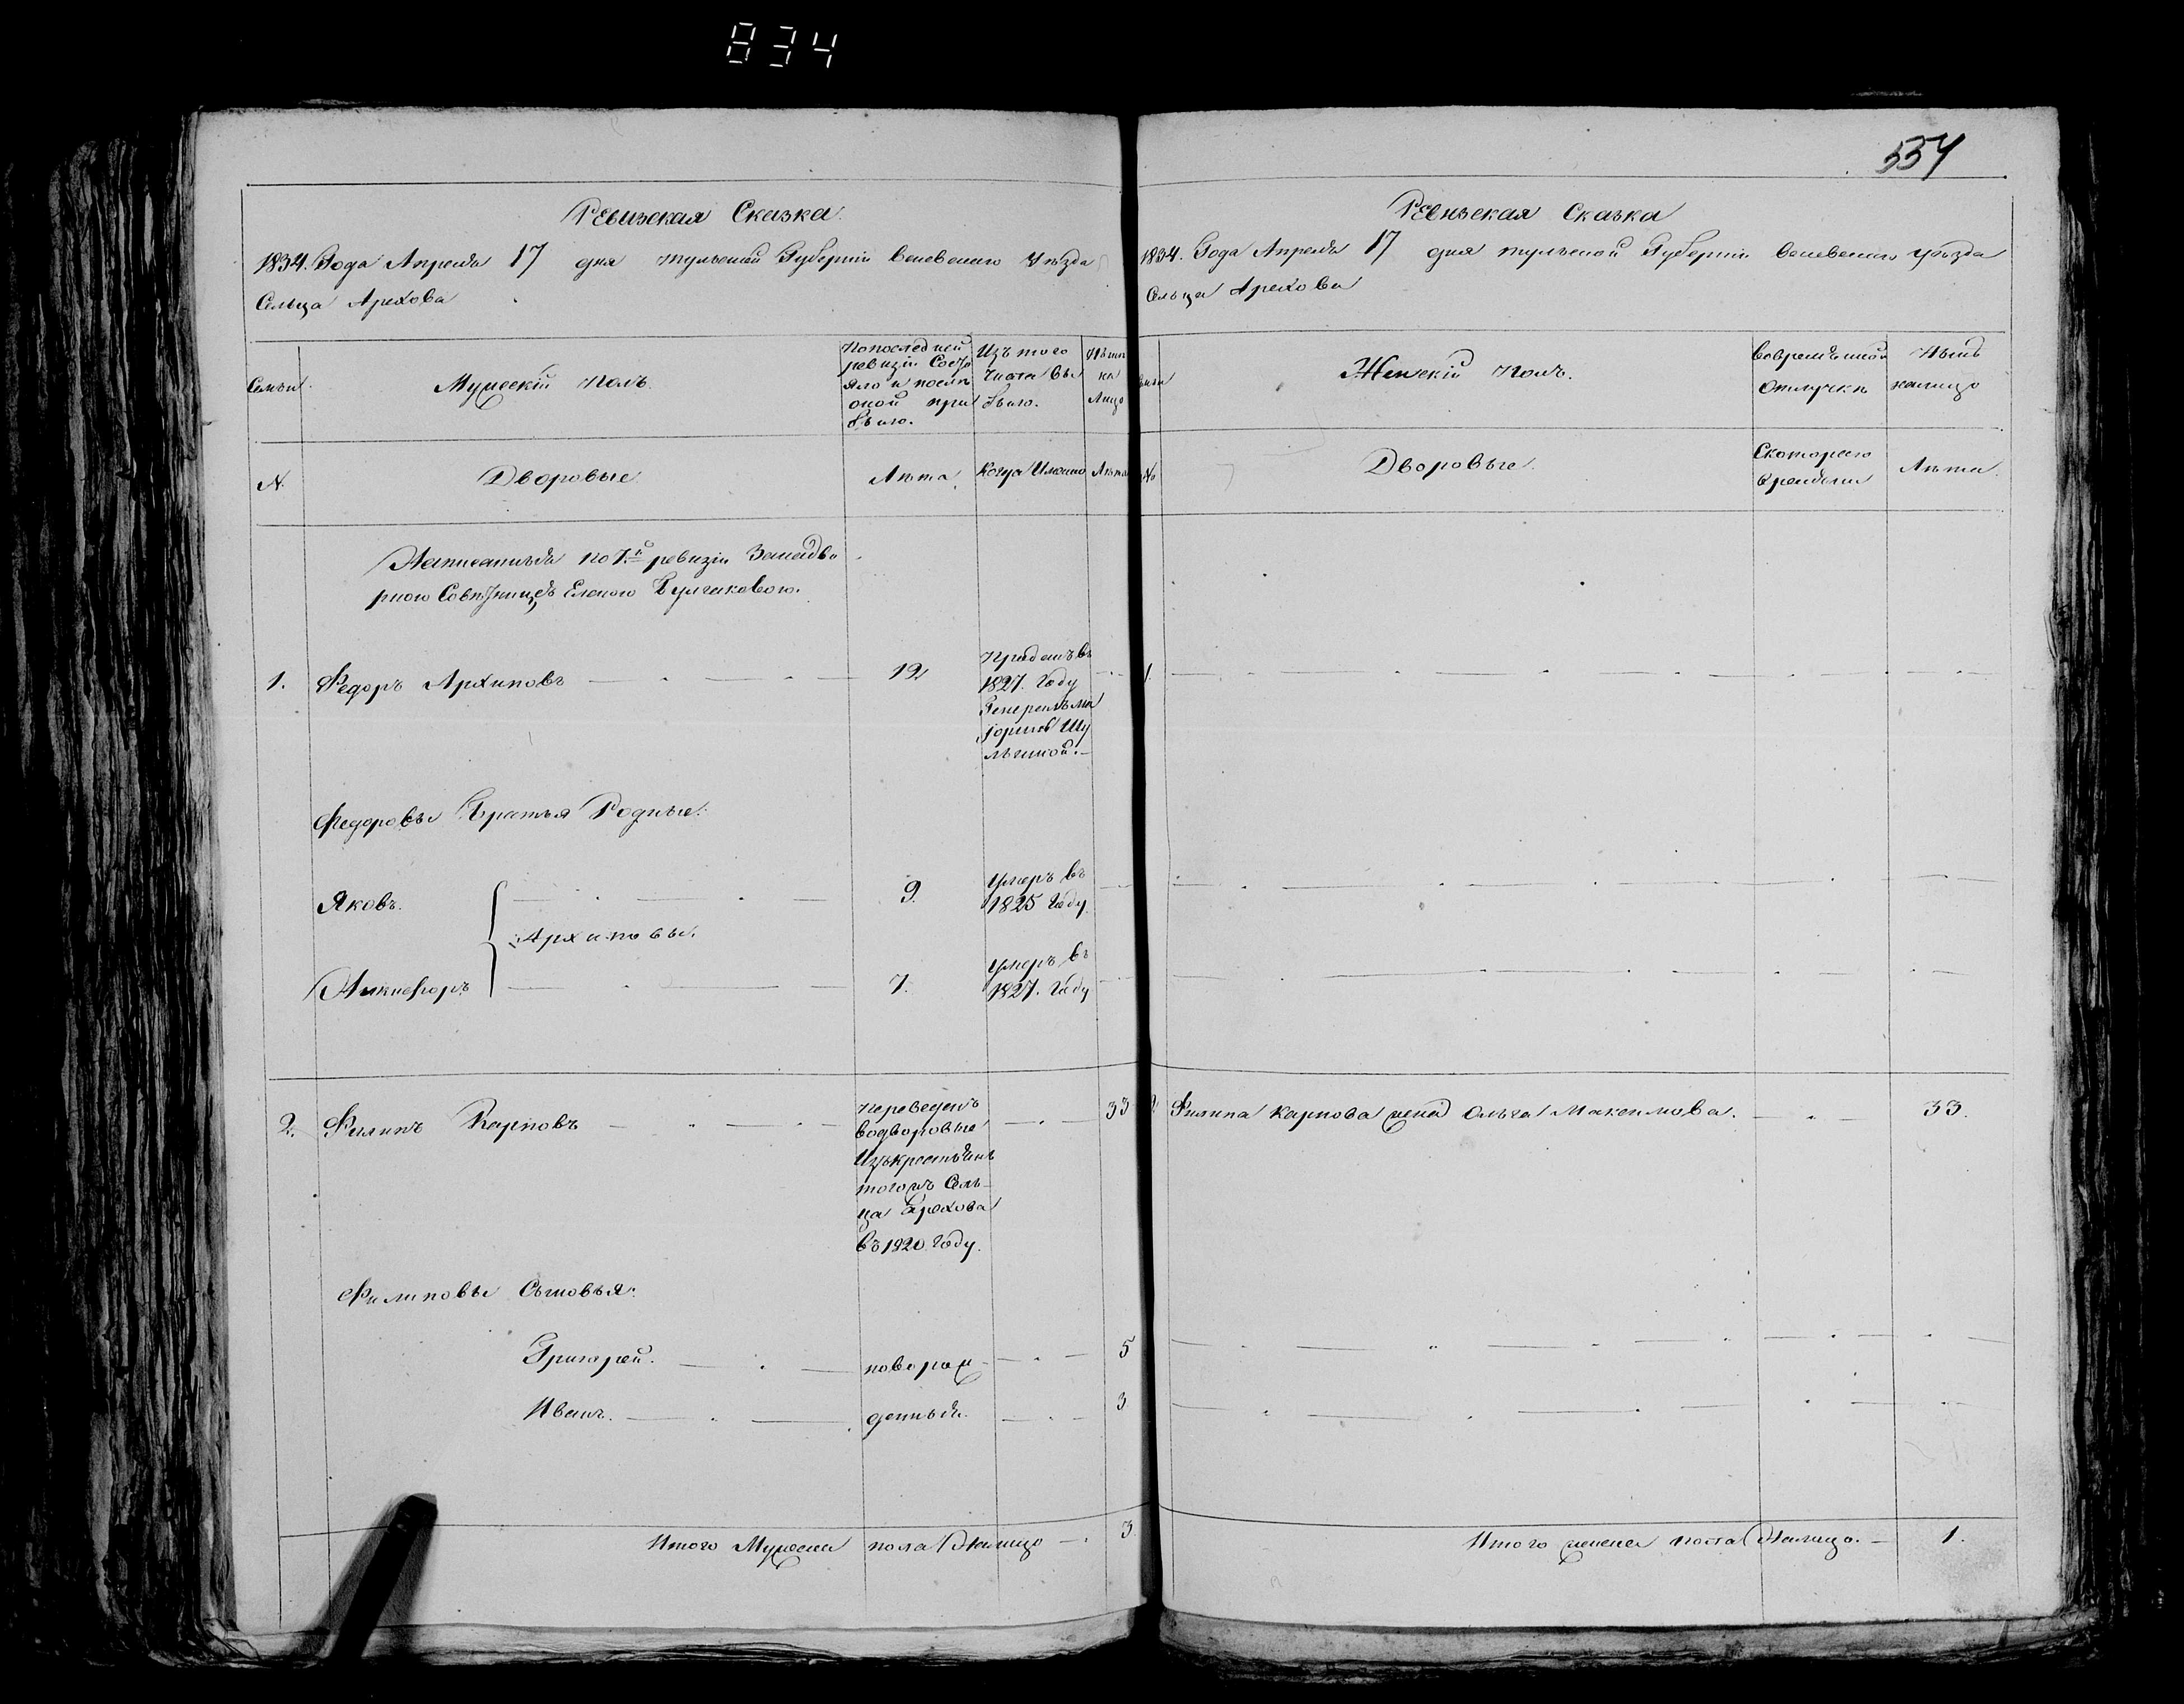 834
554
Ревизская Сказка.
1834. Года Апреля 17 дня тульской Губернии веневскаго Уѣзда
Сельца Арехова
Семьи.
Мужескій полъ.
Попоследней
ревизіи Состо
яло и послѣ
оной при
было.
Изъ того
Числа вы
было.
Нынѣ
на
Лицо
№.
Дворовые.
Лѣта.
Когда Имянно
Лѣта
Написанныя по 7.й ревизіи Занадво
рною Совѣтницею Еленою Булгаковою.
1. Федоръ Архиповъ
12
Проданъ въ
1827. Году
Генералъ ма
іоршѣ Шу
льгиной.
Федоровы Братья Родные.
Яковъ.
9.
Умеръ въ
1825 Году.
Архиповы.
Аникифоръ
7.
Умеръ въ
1827. Году
2. Филипъ Карповъ
Переведенъ
водворовые
Изъкрестьянъ
тогожъ Сель-
ца Арехова
въ 1820 Году.
33
Филиповы Сыновья.
Григорей.
новорож-
5
Иванъ.
денныя.
3
Итого Мужеска пола Налицо
3.
Ревизская Сказка
1834. Года Апреля 17 дня тульской Губернии веневскаго уѣзда
Сельца Арехова
Семьи
Женскій полъ.
Вовременной
Отлучкѣ
Нынѣ
налицо
№
Дворовые.
Скотораго
времени
Лѣта.
1.
2. Филипа Карпова жена Ольга Максимова.
33.
Итого женска пола Налицо.
1.